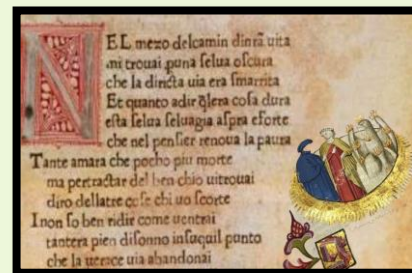 NEL mezo delcamin dinrã uita
mi trouai puna selua oscura
che la diricta uia era smarrita
Et quanto adir q̃lera cosa dura
esta selua seluagia aspra eforte
che nel pensier renoua la paura
Tante amara che pocho piu morte
ma pertractar del ben chio uitrouai
diro dellatre cose chi uo scorte
I non so ben ridir come uentrai
tantera pien disonno insuquil punto
che la uerace uia abandonai